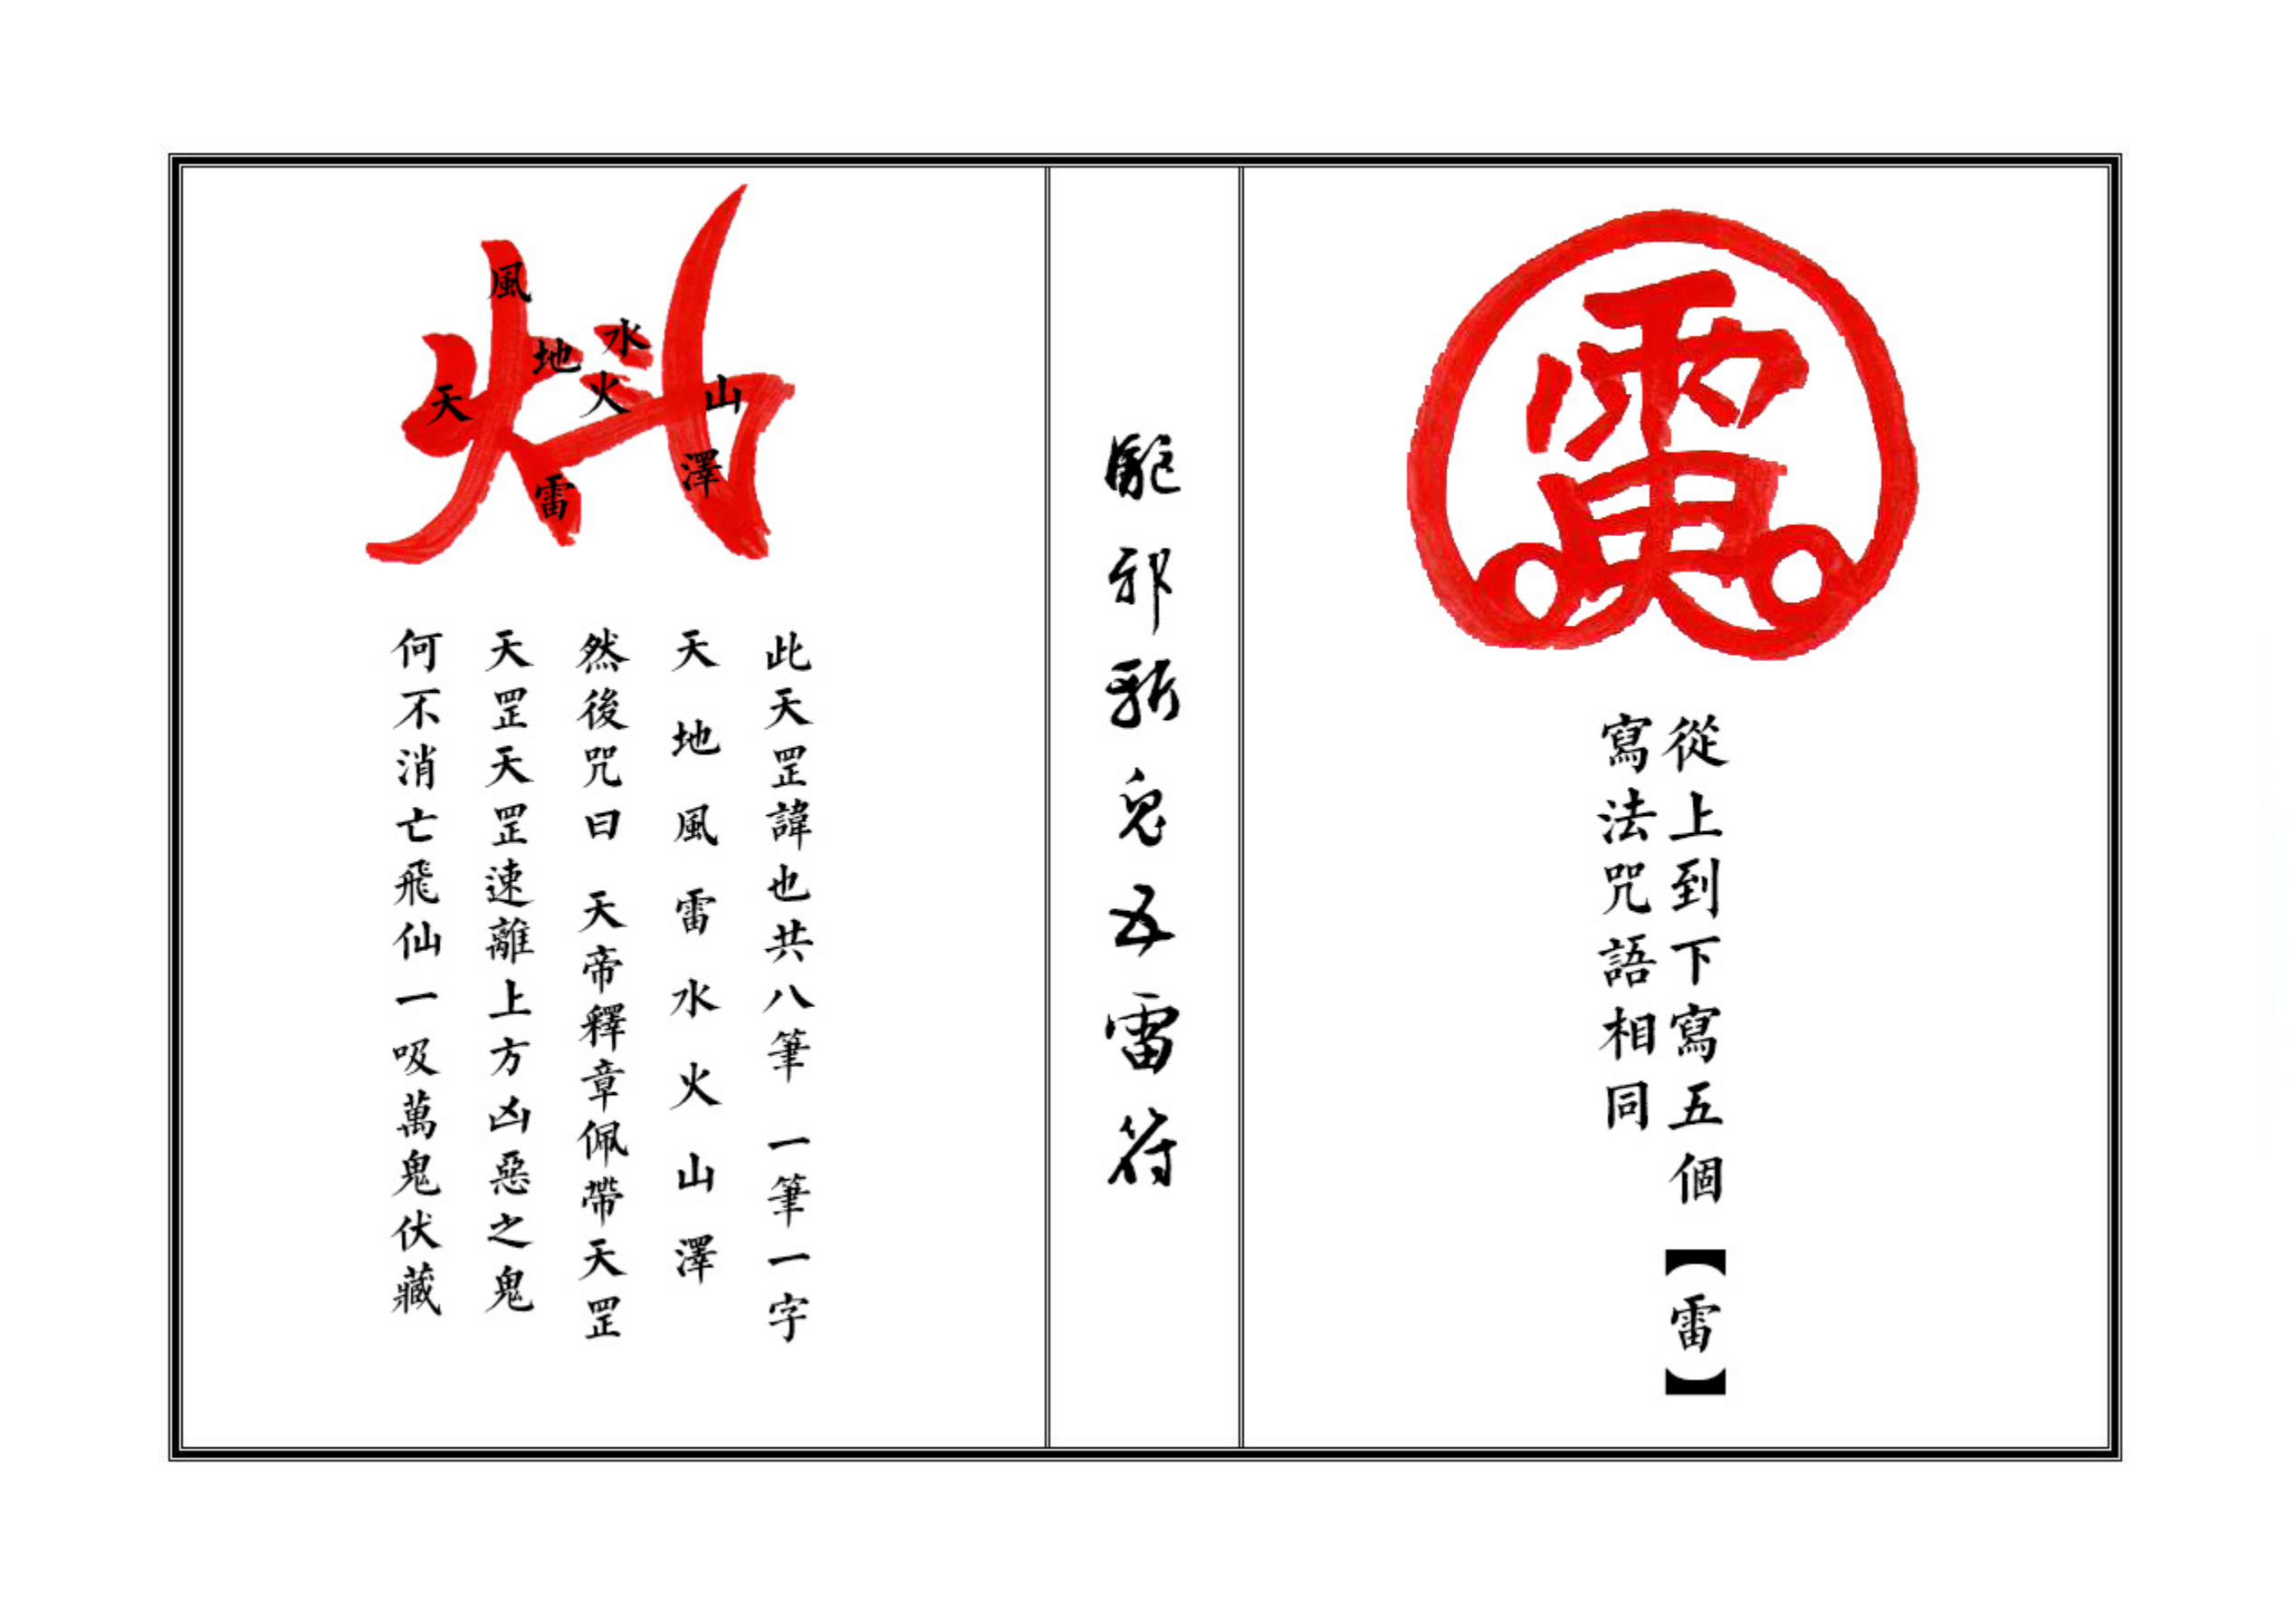 從上到下寫五個【雷】
寫法咒語相同
驅邪斬鬼五雷符
風
水
地
火
山
天
澤
雷
此天罡諱也共八筆 一筆一字
天地風雷水火山澤
然後咒曰 天帝釋章佩帶天罡
天罡天罡速離上方凶惡之鬼
何不消亡飛仙一吸萬鬼伏藏